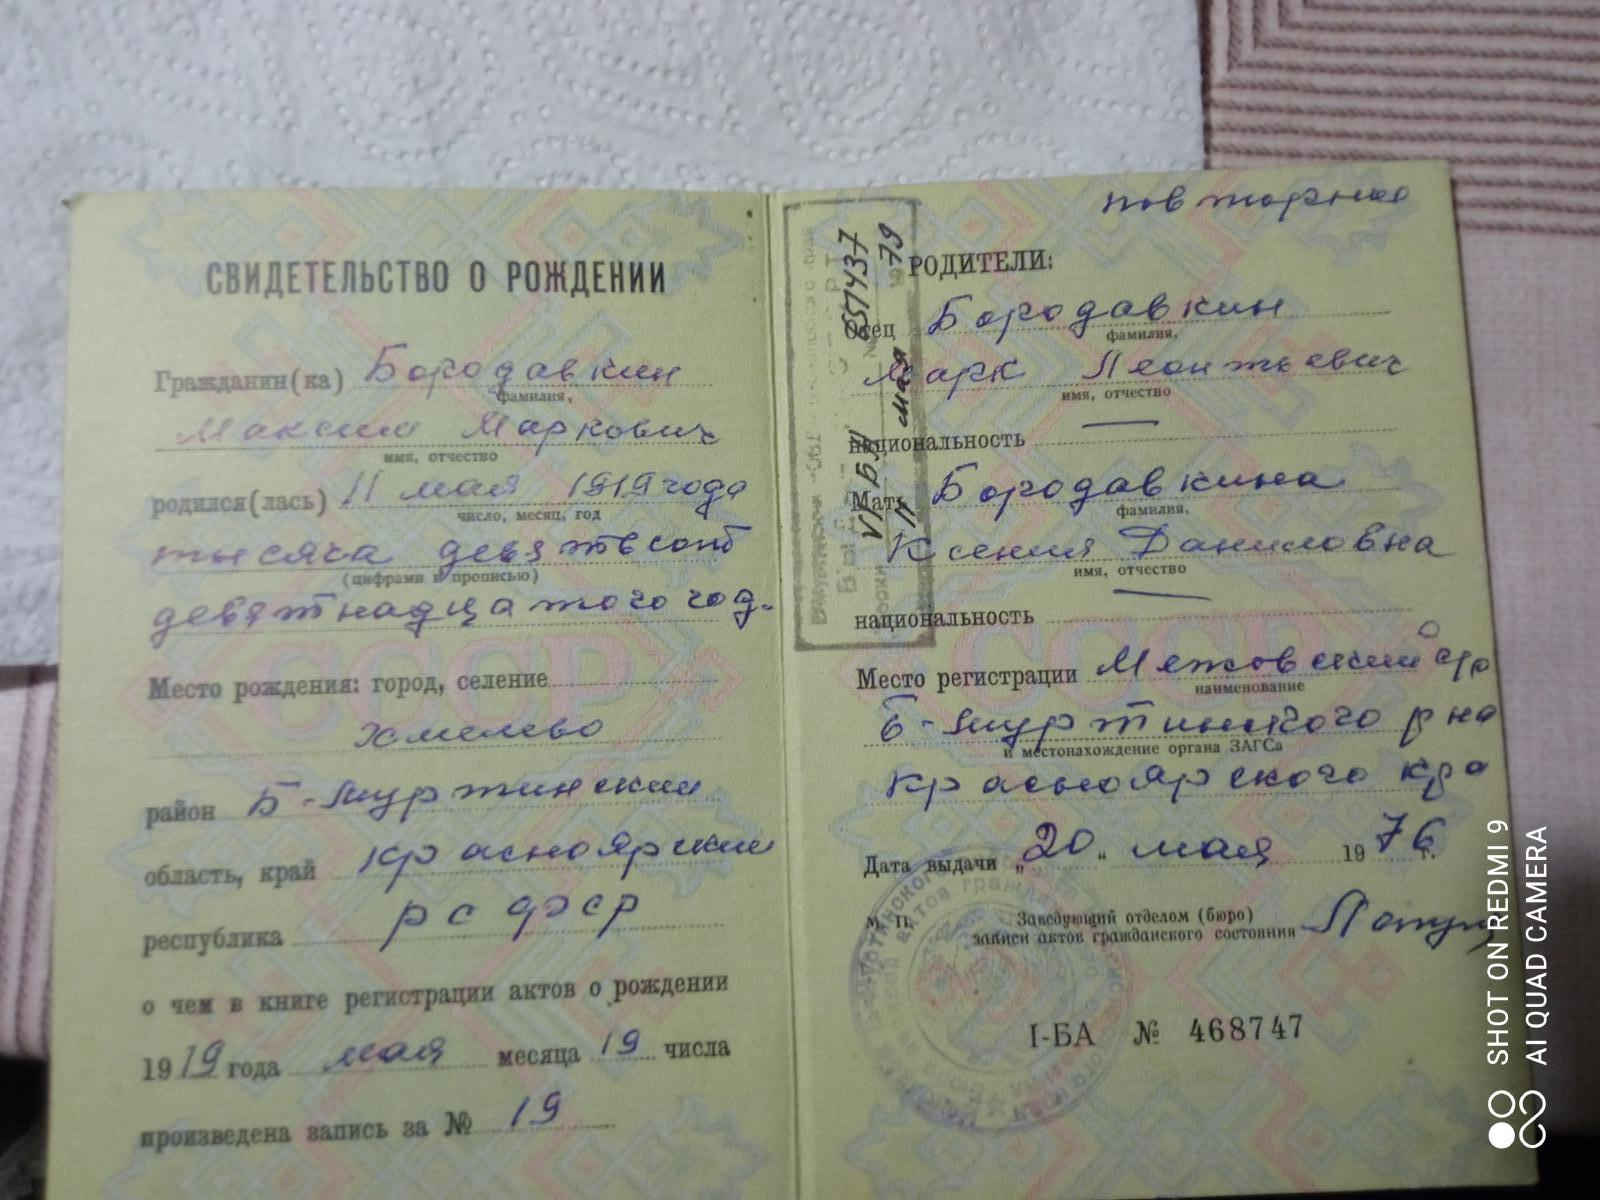 СВИДЕТЕЛЬСТВО О РОЖДЕНИИ
Гражданин(ка) Бородавкин
фамилия,
Максим Маркович
имя, отчество
родился(лась) 11 мая 1919 года
число, месяц, год
тысяча девятьсот
(цифрами и прописью)
девятнадцатого год.
Место рождения: город, селение
Хмелево
район Б-Муртинский
область, край Красноярский
республика РСФСР
о чем в книге регистрации актов о рождении
1919 года мая месяца 19 числа
произведена запись за № 19
повторное
РОДИТЕЛИ:
Отец Бородавкин
фамилия,
Марк Леонтьевич
имя, отчество
национальность —
Мать Бородавкина
фамилия,
Ксения Даниловна
имя, отчество
национальность —
Место регистрации Межовский с/с
наименование
Б-Муртинского р на
и местонахождение органа ЗАГСа
Красноярского кра
Дата выдачи „20“ мая 1976 г.
М. П. Заведующий отделом (бюро)
записи актов гражданского состояния
I-БА № 468747
VI БА
№ 557437
11 мая 79
SHOT ON REDMI 9
AI QUAD CAMERA